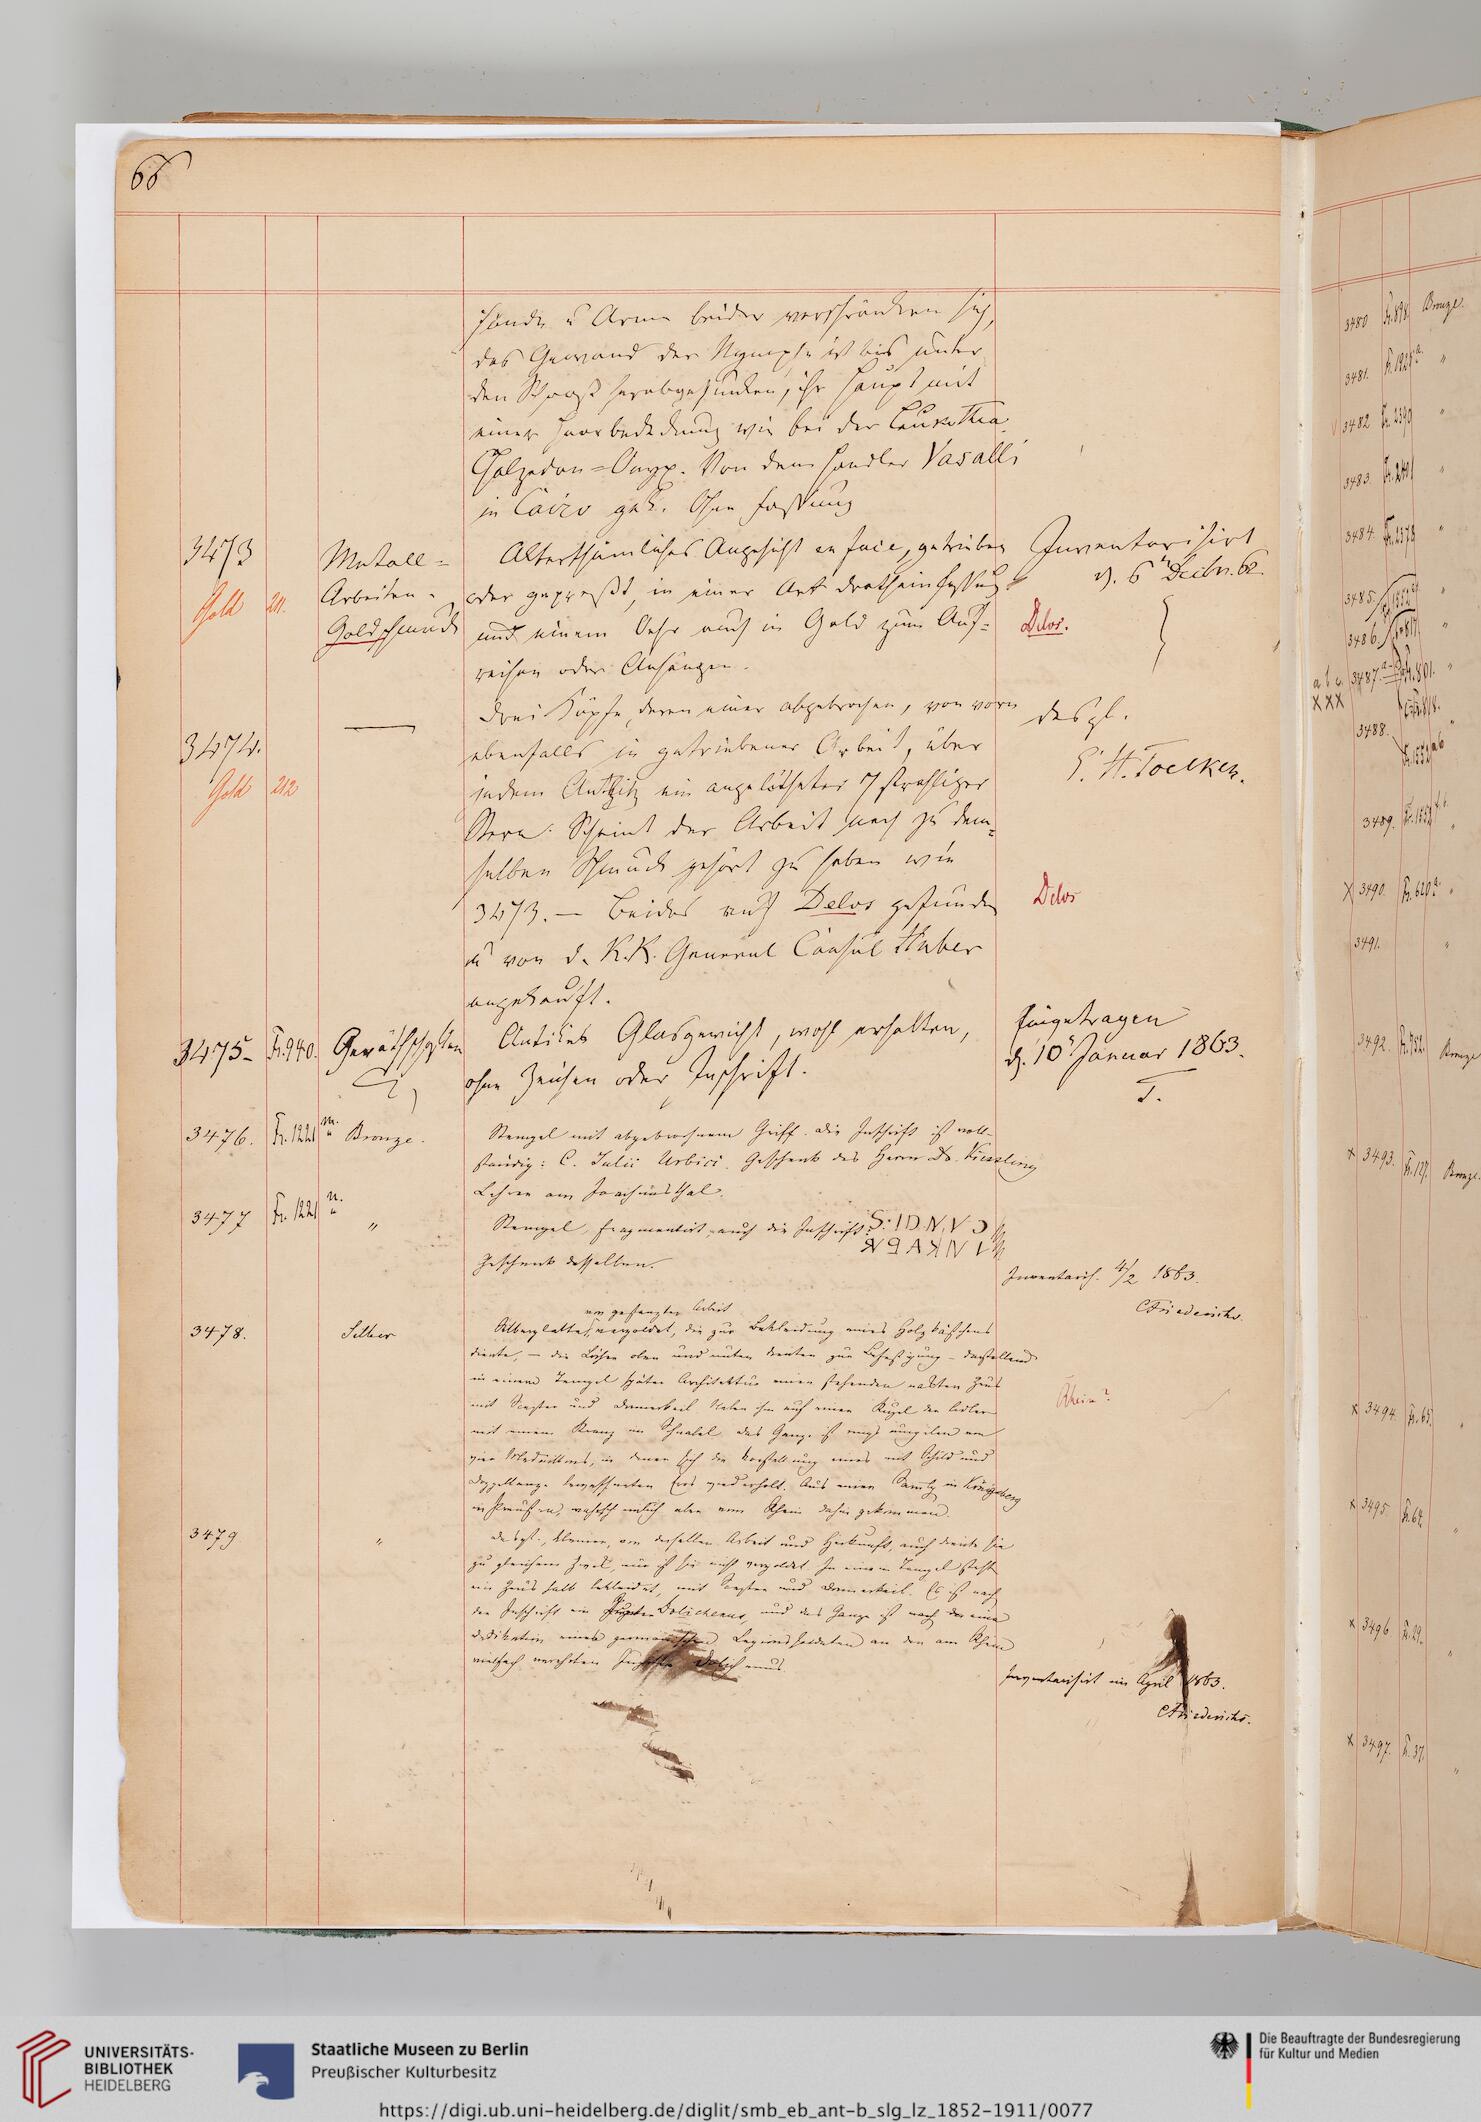 66
Hände u Arme beider verschränken sich,
das Gewand der Nymphe ist bis unter
den Schooß herabgesunken, ihr Haupt mit
einer Haarbedeckung wie bei der Leukothea.
Chalzedon=Onyx. Von dem Händler Vasalli
in Cairo gek. Ohne Fassung
3473
Gold 211.
Metall=
Arbeiten.
Goldschmuck
Alterthümliches Angesicht en face, getrieben
oder gepreßt, in einer Art Drahteinfassung
und einem Oehr auch in Gold zum Auf=
reihen oder Anhängen.
Inventarisirt
d. 6 Decbr. 62.
Delos.
3474.
Gold 212
Drei Köpfe, deren einer abgebrochen, von vorn
ebenfalls in getriebener Arbeit, über
jedem Antlitz ein angelötheter 7 strahliger
Stern. Scheint der Arbeit nach zu dem=
selben Schmuck gehört zu haben wie
3473. — Beides auf Delos gefunden
u von d. K.K. General Consul Huber
angekauft.
desgl.
E. H. Toelken.
Delos
3475 Fr. 940. Geräthschaften
Antikes Glasgewicht, wohl erhalten,
ohne Zeichen oder Inschrift.
Eingetragen
d. 10 Januar 1863.
T.
3476. Fr. 1221 m. Bronze.
Stempel mit abgebrochenem Griff. Die Inschrift ist voll-
ständig: C. Julii Urbici. Geschenk des Herrn Dr. Kiessling
Lehrer am Joachimsthal.
3477 Fr. 1221 n. "
Stempel, fragmentirt, auch die Inschrift:
Geschenk desselben.
Inventaris. 4/2 1863.
CFriederichs.
3478. Silber
von gestanzter Arbeit
Silberplatte, vergoldet, die zur Bekleidung eines Holzkästchens
diente, — die Löcher oben und unten dienten zur Befestigung — darstellend
in einem Tempel später Architektur einen stehenden nackten Zeus
mit Scepter und Donnerkeil. Neben ihm auf einer Kugel der Adler
mit einem Kranz im Schnabel. Das Ganze ist rings umgeben von
vier Medaillons, in denen sich die Vorstellung eines mit Schild und
Doppellanze bewaffneten Eros wiederholt. Aus einer Sammlg in Königsberg
in Preußen, wahrscheinlich aber vom Rhein dahin gekommen.
Rhein?
3479 "
desgl., kleiner, von derselben Arbeit und Herkunft, auch diente sie
zu gleichem Zweck, nur ist sie nicht vergoldet. In einem Tempel steht
ein Zeus halb bekleidet, mit Scepter und Donnerkeil. Es ist nach
der Inschrift ein Jupiter Dolichenus, und das Ganze ist nach der eine
Dedikation eines germanischen Legionssoldaten an den am Rhein
vielfach verehrten Jupiter Dolichenus.
Inventarisirt im April 1863.
CFriederichs.
3480 Fr. 898. Bronze.
3481. Fr. 1925 a. "
3482 Fr. 2390 "
3483. "
3484. Fr. 2378 "
3485. "
3486. "
3487.
3488.
3489. "
3490. Fr. 620 a. "
3491. "
3492. Fr. 752. Bronze
3493. Fr. 127. Bronze.
3494. Fr. 65.
3495. Fr. 64.
3496 Fr. 29.
3497. Fr. 37.
UNIVERSITÄTS-
BIBLIOTHEK
HEIDELBERG
Staatliche Museen zu Berlin
Preußischer Kulturbesitz
Die Beauftragte der Bundesregierung
für Kultur und Medien
https://digi.ub.uni-heidelberg.de/diglit/smb_eb_ant-b_slg_lz_1852-1911/0077